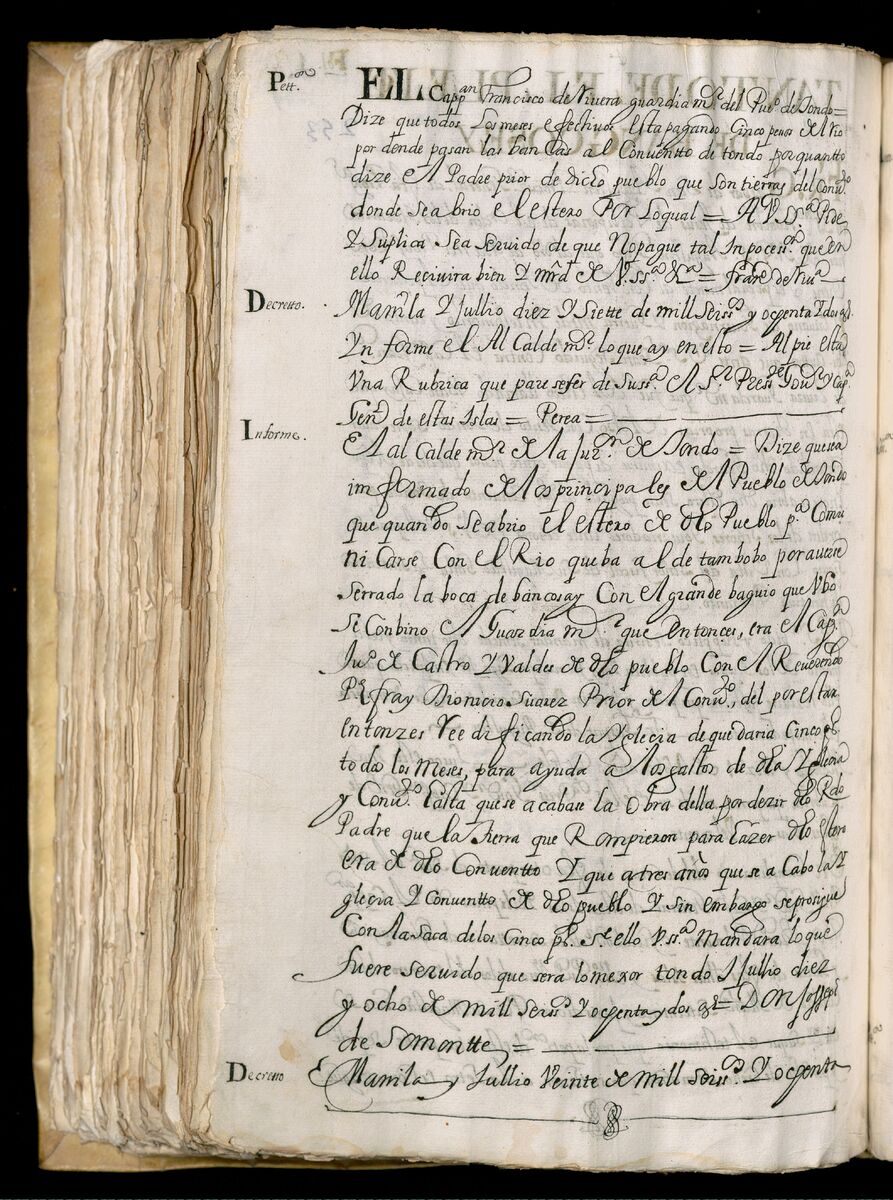 Pett.on
EL Capp.an Francisco de Rivera guardia m.r del Pu.o de tondo=
Dize que todos Los meses efectivos esta pagando Cinco pesos del Rio
por donde pasan las bancas al Conventto de tondo por quantto
dize El Padre prior de dicho pueblo que son tierras del Conv.to
donde se abrio el estero Por Loqual = A V.SS.a Pide
Y Suplica Sea servido de que No pague tal Inpocess.n que en
ello Recivira bien Y mrd de V.ss.a &.a = fran.co de Riv.a
Decretto.
Manila Y Jullio diez Y siette de mill seiss.os y ochenta Y dos a.s
Ynforme el Alcalde m.r lo que ay en esto = Al pie esta
Una Rubrica que parese ser de su ss.a El S.r Press.te Gov.or Y Cap.n
Gen.l de estas Islas = Perea =
Informe.
El alcalde m.r de la Jur.on de tondo = Dize que sea
imformado de los principales del Pueblo de tondo
que quando se abrio el estero de dho Pueblo p.a Comu
nicarse Con el Rio que ba al de tambobo por averse
serrado la boca de bancosay Con el grande baguio que Vbo
se Conbino el Guardia m.r que entonces, era el Cap.n
Ju.o de Castro Y Valdes de dho pueblo Con el Reverendo
P.e fray Dionicio Suarez Prior del Conv.to, del por estar
entonzes Reedificando la Yglecia de que daria Cinco p.s
todos los meses, para ayuda a los gastos de dha Yglecia
y Conv.to hasta que se acabase la obra della por dezir dho Rdo
Padre que la tierra que Rompieron para hazer dho estero
era de dho Conventto Y que a tres años que se acabo la Y
glecia Y Conventto de dho pueblo Y sin embargo se prosigue
Con la saca de los Cinco p.s S.re ello V.ss.a Mandara lo que
fuere servido que sera lo mexor tondo Y Jullio diez
y ocho de mill seiss.os Y ochenta y dos a.s = Don Joseph
de Somontte, =
Decretto
Manila y Jullio Veinte de mill seiss.os Y ochenta